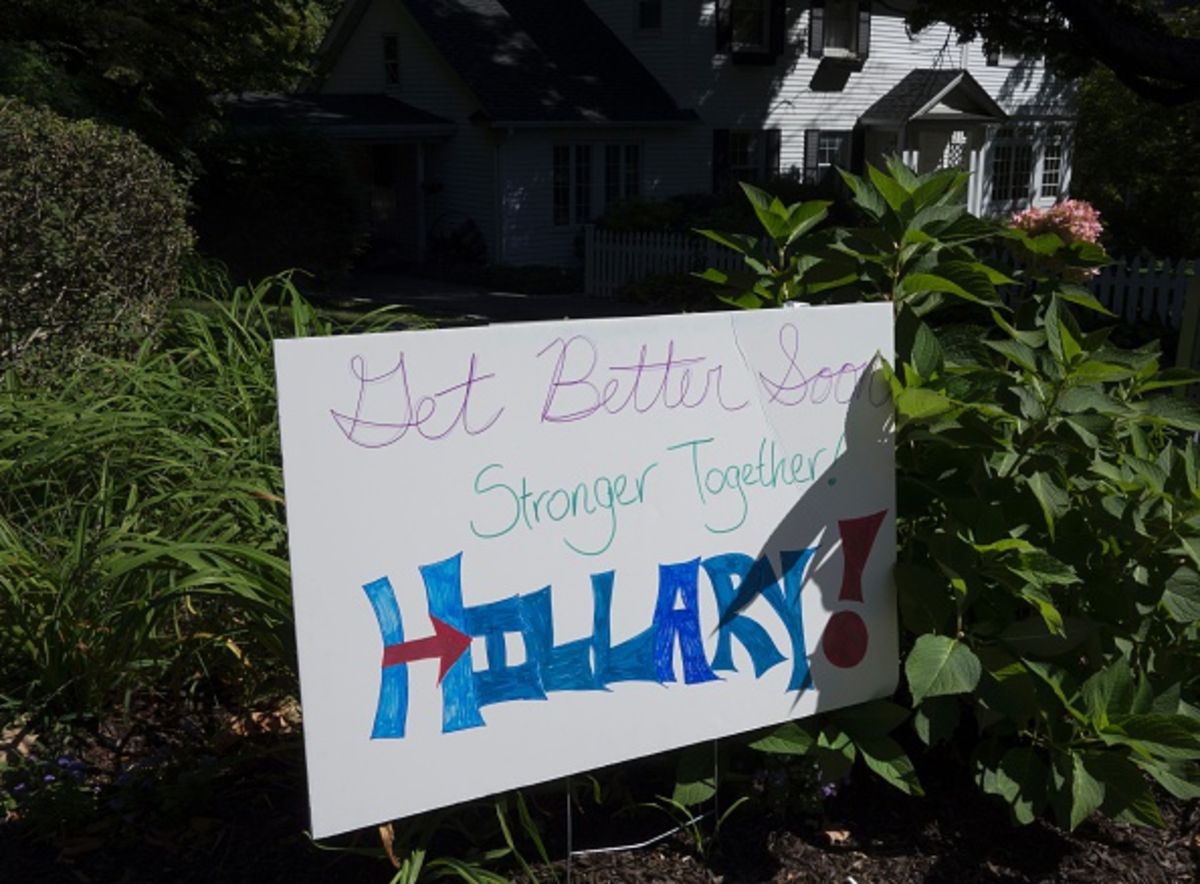 Get Better Soon
Stronger Together!
HILLARY!